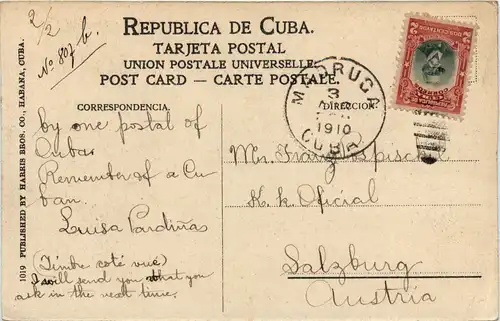 2/2
Nº 807 b.
REPUBLICA DE CUBA.
TARJETA POSTAL
UNION POSTALE UNIVERSELLE
POST CARD — CARTE POSTALE.
CORRESPONDENCIA
DIRECCION:
MADRUGA
3
1910
CUBA
REPUBLICA DE CUBA
CORREOS
1019 PUBLISHED BY HARRIS BROS. CO., HABANA, CUBA.
by one postal of
Cuba.
Remember of a Cu
ban.
Luisa Pardiñas
(Timbre coté vue)
I will send you what you
ask in the next time.
Mr. Franz
K. k. Oficial
Salzburg
Austria